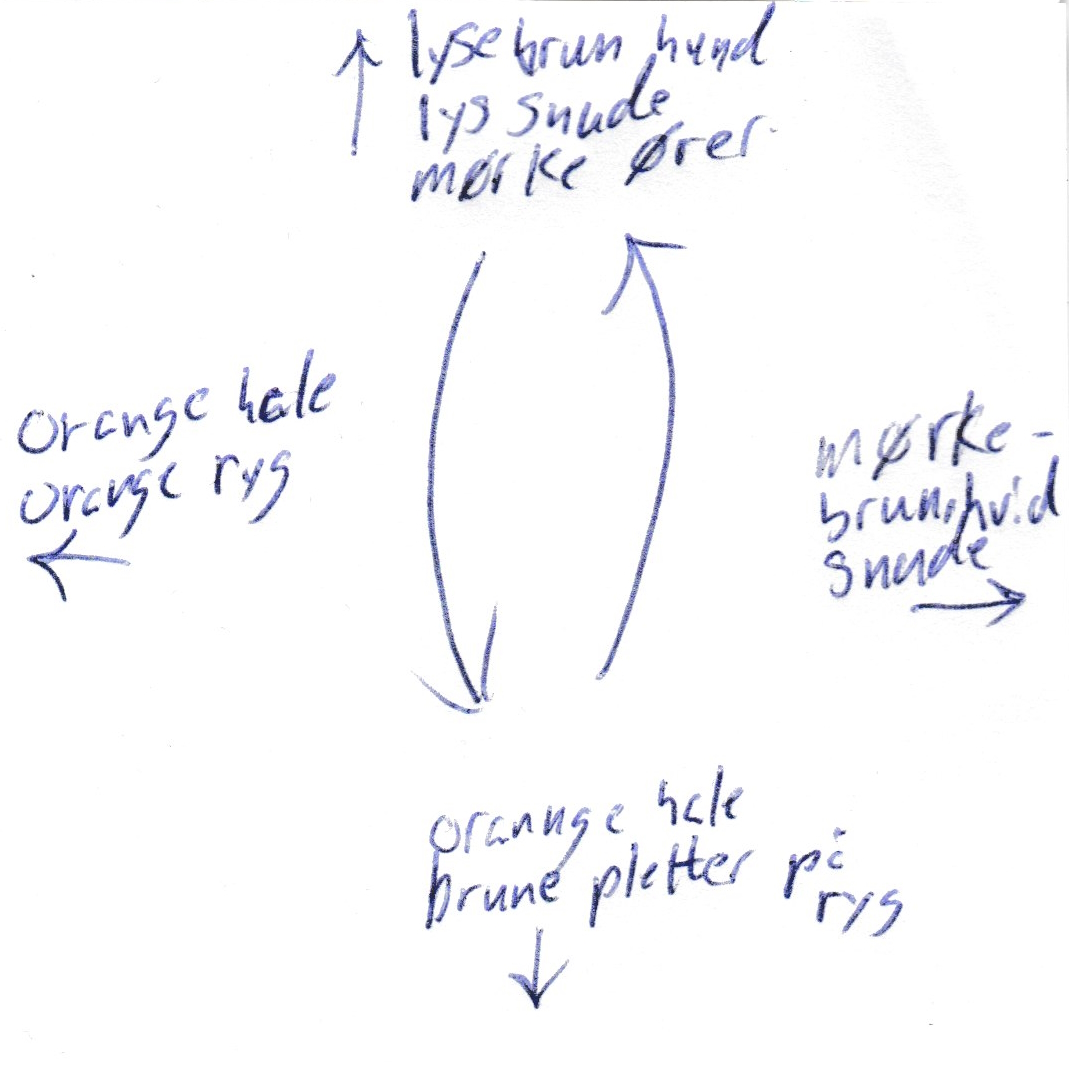 lysebrun hund
lys snude
mørke ører
orange hale
orange ryg
mørke-
brun,hvid
snude
orannge hale
brune pletter på
ryg